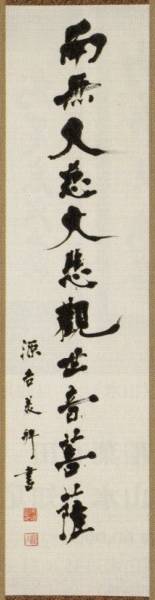 南無大慈大悲觀世音菩薩
源吉美 書